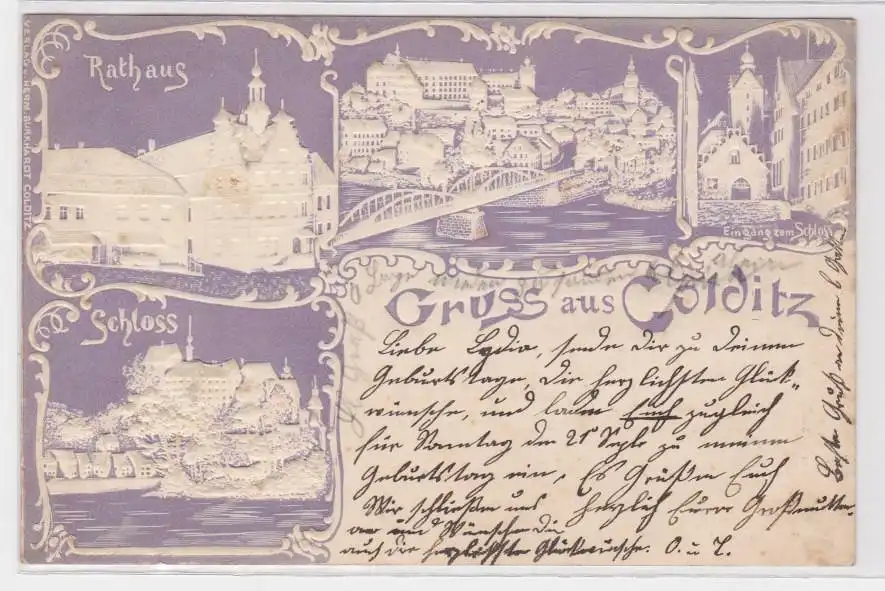 VERLAG V. HERM. BURKHARDT COLDITZ
Rathaus
Eingang zum Schloss
Schloss
Gruss aus Colditz
Liebe Lydia, sende dir zu deinem
Geburtstage, die herzlichsten Glück-
wünsche, und lade Euch zugleich
für Sonntag den 21 Sept. zu meinem
Geburtstag ein, Es Grüßen Euch
herzlich Eure Großmutter
Wir schließen uns
an und Wünschen dir
auch die herzlichsten Glückwünsche. O. u. L.
Besten Gruß